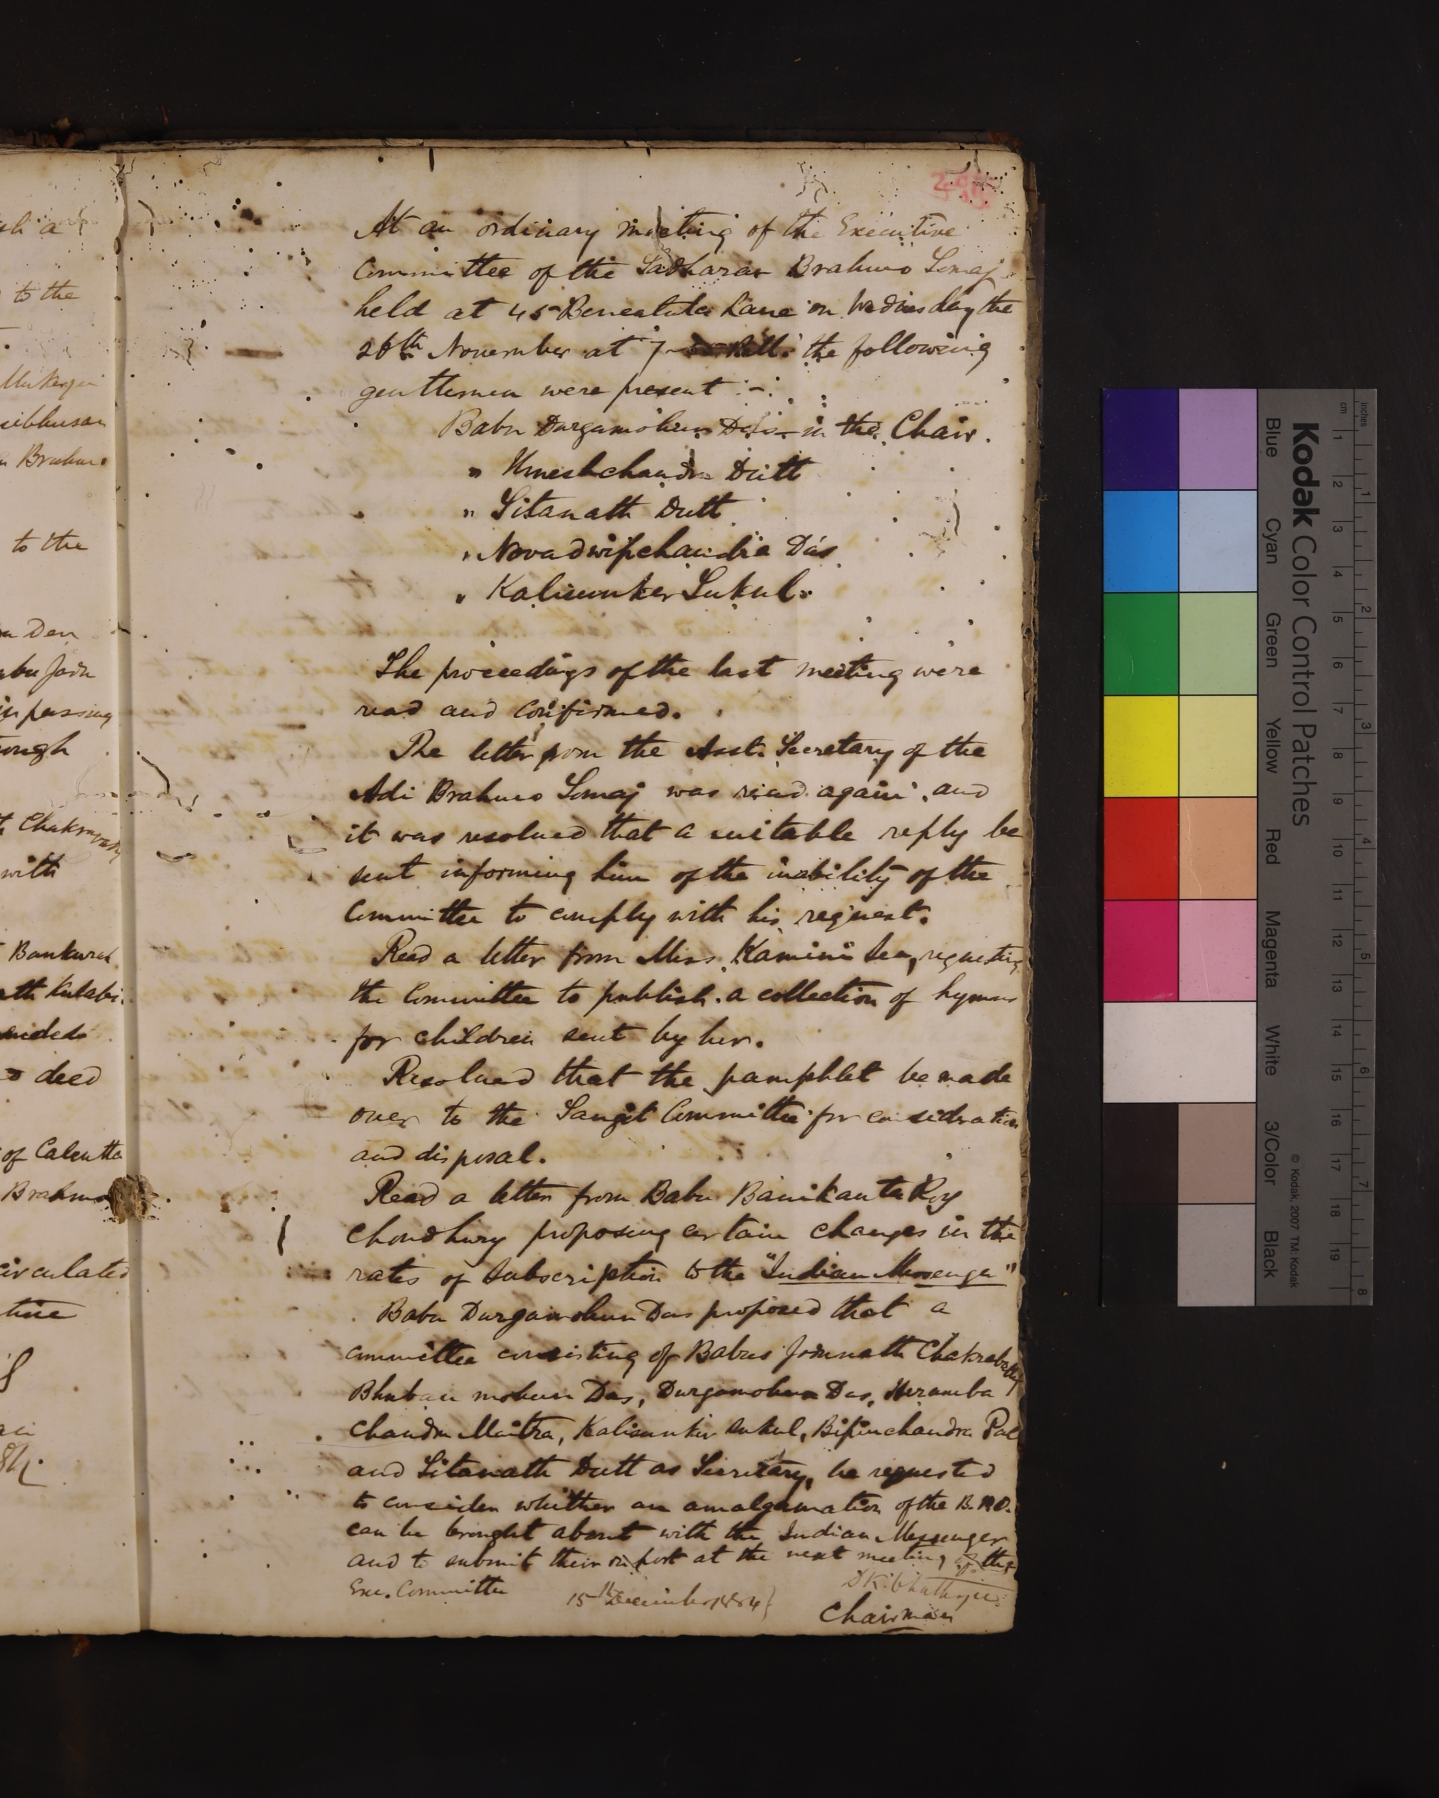 At an ordinary meeting of the Executive
Committee of the Sadharan Brahmo Somaj
held at 45 Beneatola Lane on Wednesday the
26th November at 7 the following
gentlemen were present :-
Babu Durgamohun Das in the Chair.
" Umeshchandra Dutt
" Sitanath Dutt
" Novadwipchandra Das
" Kalisunker Sukul.
The proceedings of the last meeting were
read and confirmed.
The letter from the Asst. Secretary of the
Adi Brahmo Somaj was read again, and
it was resolved that a suitable reply be
sent informing him of the inability of the
Committee to comply with his request.
Read a letter from Miss Kamini Sen, requesting
the Committee to publish a collection of hymns
for children sent by her.
Resolved that the pamphlet be made
over to the Sangit Committee for consideration
and disposal.
Read a letter from Babu Banikanta Roy
Chowdhury proposing certain changes in the
rates of Subscription to the "Indian Messenger"
Babu Durgamohun Das proposed that a
committee consisting of Babus Jodunath Chakrabarty
Bhuban mohun Das, Durgamohun Das, Heramba
Chandra Maitra, Kalisunker Sukul, Bipinchandra Pal
and Sitanath Dutt as Secretary, be requested
to consider whether an amalgamation of the B.P.O.
can be brought about with the Indian Messenger
and to submit their report at the next meeting of the
Exe. Committee
15th December 1884
Chairman
to the
Brahmo
to the
with
Bankurah
deed
of Calcutta
Brahmo
circulated
Kodak Color Control Patches
Blue Cyan Green Yellow Red Magenta White 3/Color Black
© Kodak, 2007 TM: Kodak
inches 1 2 3 4 5 6 7 8
cm 1 2 3 4 5 6 7 8 9 10 11 12 13 14 15 16 17 18 19